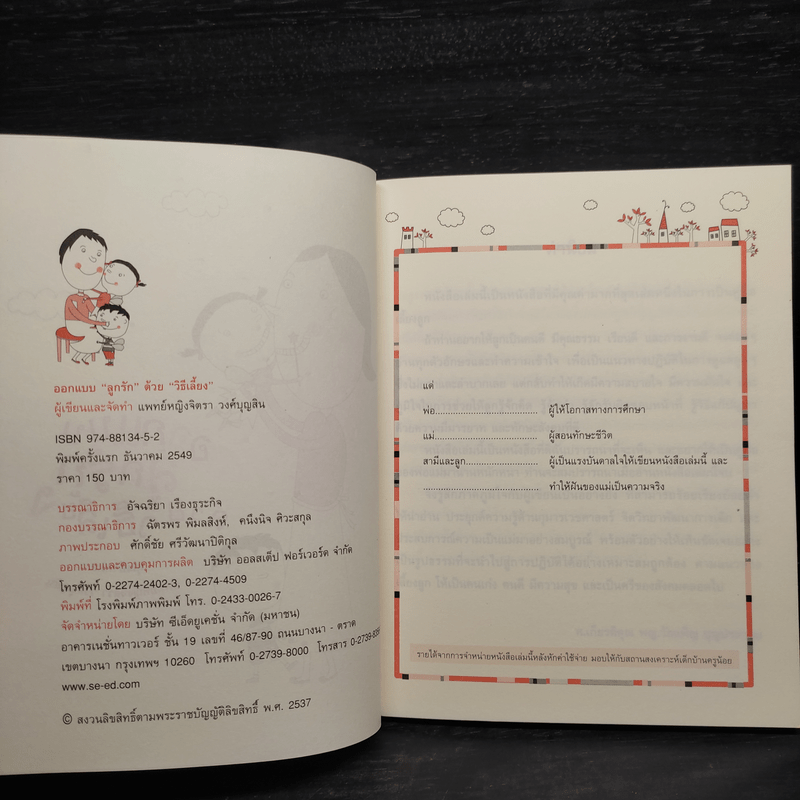 ออกแบบ "ลูกรัก" ด้วย "วิธีเลี้ยง"
ผู้เขียนและจัดทำ แพทย์หญิงจิตรา วงศ์บุญสิน
ISBN 974-88134-5-2
พิมพ์ครั้งแรก ธันวาคม 2549
ราคา 150 บาท
บรรณาธิการ อัจฉริยา เรืองธุระกิจ
กองบรรณาธิการ ฉัตรพร พิมลสิงห์, คนึงนิจ ศิวะสกุล
ภาพประกอบ ศักดิ์ชัย ศรีวัฒนาปิติกุล
ออกแบบและควบคุมการผลิต บริษัท ออลสเต็ป ฟอร์เวอร์ด จำกัด
โทรศัพท์ 0-2274-2402-3, 0-2274-4509
พิมพ์ที่ โรงพิมพ์ภาพพิมพ์ โทร. 0-2433-0026-7
จัดจำหน่ายโดย บริษัท ซีเอ็ดยูเคชั่น จำกัด (มหาชน)
อาคารเนชั่นทาวเวอร์ ชั้น 19 เลขที่ 46/87-90 ถนนบางนา - ตราด
เขตบางนา กรุงเทพฯ 10260 โทรศัพท์ 0-2739-8000 โทรสาร 0-2739-
www.se-ed.com
© สงวนลิขสิทธิ์ตามพระราชบัญญัติลิขสิทธิ์ พ.ศ. 2537
แด่
พ่อ.............................. ผู้ให้โอกาสทางการศึกษา
แม่.............................. ผู้สอนทักษะชีวิต
สามีและลูก..................... ผู้เป็นแรงบันดาลใจให้เขียนหนังสือเล่มนี้ และ
................................... ทำให้ฝันของแม่เป็นความจริง
รายได้จากการจำหน่ายหนังสือเล่มนี้หลังหักค่าใช้จ่าย มอบให้กับสถานสงเคราะห์เด็กบ้านครูน้อย